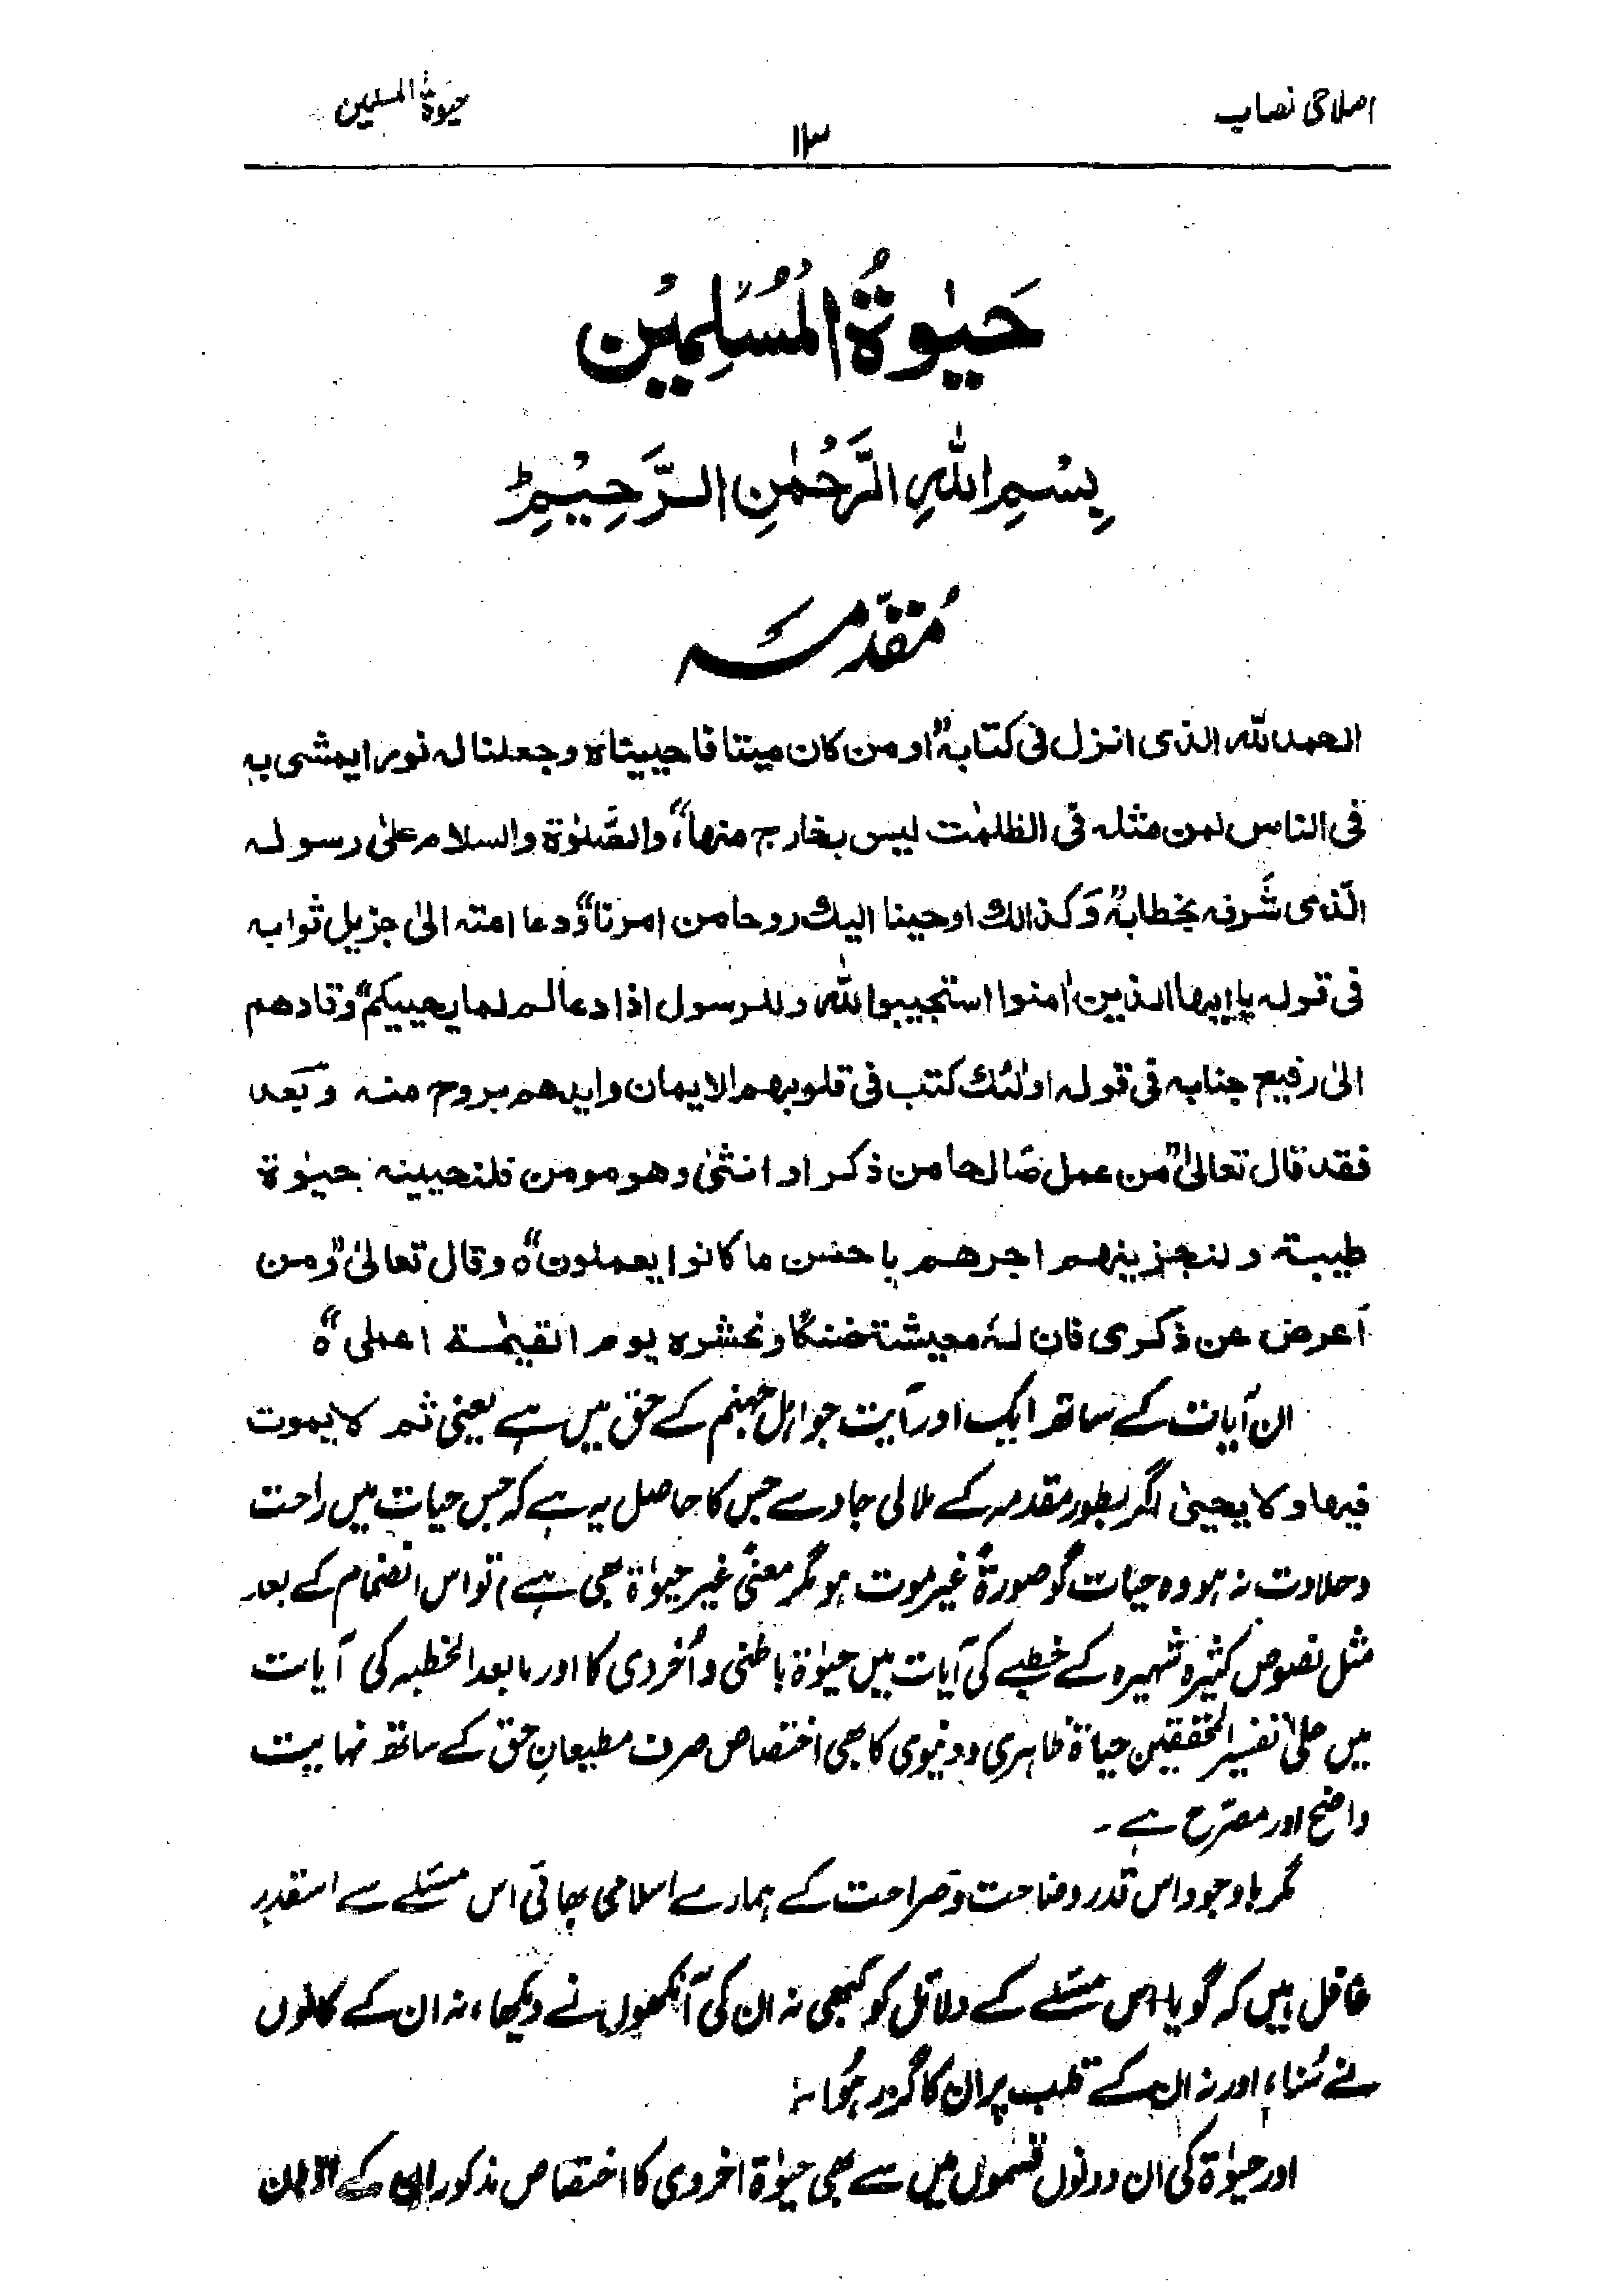 اصلاحی نصاب
۱۳
حیوٰۃ المسلمین
حَیٰوۃُ الْمُسْلِمِیْن
بِسْمِ اللّٰہِ الرَّحْمٰنِ الرَّحِیْمِؕ
مُقدّمہ
الحمد للّٰہ الذی انزل فی کتابہٖ" او من کان میتنا فاحییناہ وجعلنا لہ نورا یمشی بہ
فی الناس لمن مثلہ فی الظلمٰت لیس بخارج منھا"، والصَّلوٰۃ والسلام علیٰ رسولہ
الَّذی شَرفہ بخطابہٖ" وَکذالک اوحینا الیک روحا من امرنا" وَدعا امتہ الیٰ جزیل ثوابہ
فی قولہ یاایھا الذین اٰمنوا استجیبوا للّٰہ وللرسول اذا دعالم لما یحییکم" وقادھم
الیٰ رفیع جنابہ فی قولہ اولٰئک کتب فی قلوبھم الایمان وایدھم بروح منہ وبَعد
فقد قال تعالیٰ" من عمل صَالحا من ذکر او انثیٰ وھو مومن فلنحیینہ حیوٰۃ
طیبۃ ولنجزینھم اجرھم باحسن ما کانوا یعملون"ہ وقال تعالیٰ" ومن
اَعرض عن ذکری فان لہٗ معیشۃ ضنکًا ونحشرہ یوم القیٰمۃ اعمٰی"ہ
ان آیات کے ساتھ ایک اور آیت جو اہل جہنم کے حق میں ہے یعنی ثم لایموت
فیھا ولایحییٰ اگر بطور مقدمہ کے ملالی جاوے جس کا حاصل یہ ہے کہ جس حیات میں راحت
وحلاوت نہ ہو وہ حیات گو صورۃً غیر موت ہو مگر معنیً غیر حیوٰۃ بھی ہے) تو اس انضمام کے بعد
مثل نصوص کثیرہ شہیرہ کے خطبے کی آیات میں حیوٰۃ باطنی واُخروی کا اور مابعد الخطبہ کی آیات
میں علیٰ تفسیر المحققین حیاۃ ظاہری ودنیوی کا بھی اختصاص صرف مطیعانِ حق کے ساتھ نہایت
واضح اور مصرّح ہے۔
مگر باوجود اس قدر وضاحت وصراحت کے ہمارے اسلامی بھائی اس مسئلے سے اسقدر
غافل ہیں کہ گویا اس مسئلے کے دلائل کو کبھی نہ ان کی آنکھوں نے دیکھا، نہ ان کے کانوں
نے سُنا، اور نہ ان کے قلب پر ان کا گزر ہُوا۔
اور حیوٰۃ کی ان دونوں قسموں میں سے بھی حیوٰۃ اخروی کا اختصاص مذکور ان کے اذہان